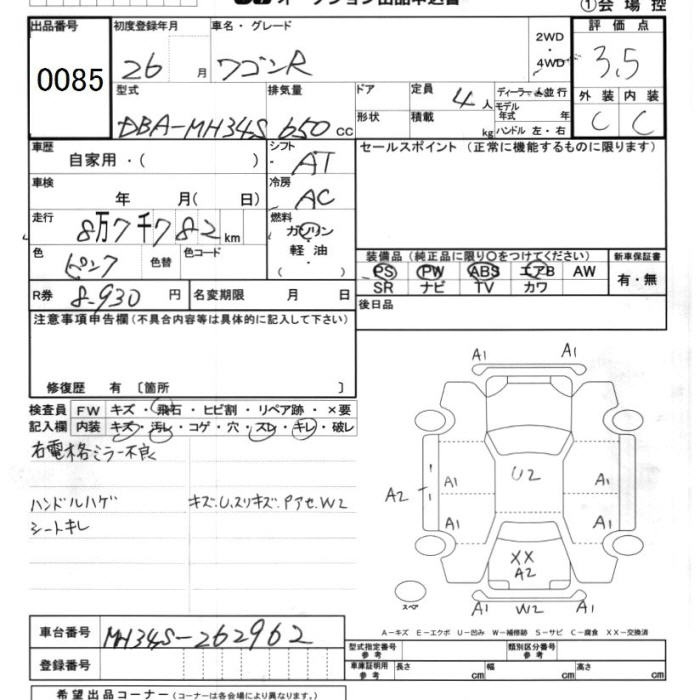 オークション出品申込書
①会場控
出品番号 初度登録年月 車名・グレード 2WD・4WD 評価点
0085 26 月 ワゴンR 3.5
型式 排気量 ドア 定員 4人 ディーラー・並行 外装 内装
モデル年式 年
DBA-MH34S 650cc 形状 積載 kg ハンドル 左・右 C C
車歴 シフト セールスポイント(正常に機能するものに限ります)
自家用・( ) AT
車検 冷房
年 月( 日) AC
走行 燃料
8万7千782km ガソリン
軽油
・( )
色 ピンク 色替 色コード
装備品(純正品に限り○をつけてください) 新車保証書
PS PW ABS エアB AW 有・無
SR ナビ TV カワ
R券 8-930円 名変期限 月 日 後日品
注意事項申告欄(不具合内容等は具体的に記入して下さい)
修復歴 有〔箇所 〕
検査員 FW キズ・飛石・ヒビ割・リペア跡・×要
記入欄 内装 キズ・汚レ・コゲ・穴・スレ・キレ・破レ
右電格ミラー不良
ハンドルハゲ キズ.U.スリキズ.Pアセ.W2
シートキレ
A1 A1
U2
A1 A1
A2
A1 A1
XX
A2
A1 W2 A1
スペア
A−キズ E−エクボ U−凹み W−補修跡 S−サビ C−腐食 XX−交換済
車台番号 MH34S-262962
登録番号
型式指定番号 参考 類別区分番号 参考
車庫証明用 参考 長さ cm 幅 cm 高さ cm
希望出品コーナー(コーナーは各会場により異なります。)